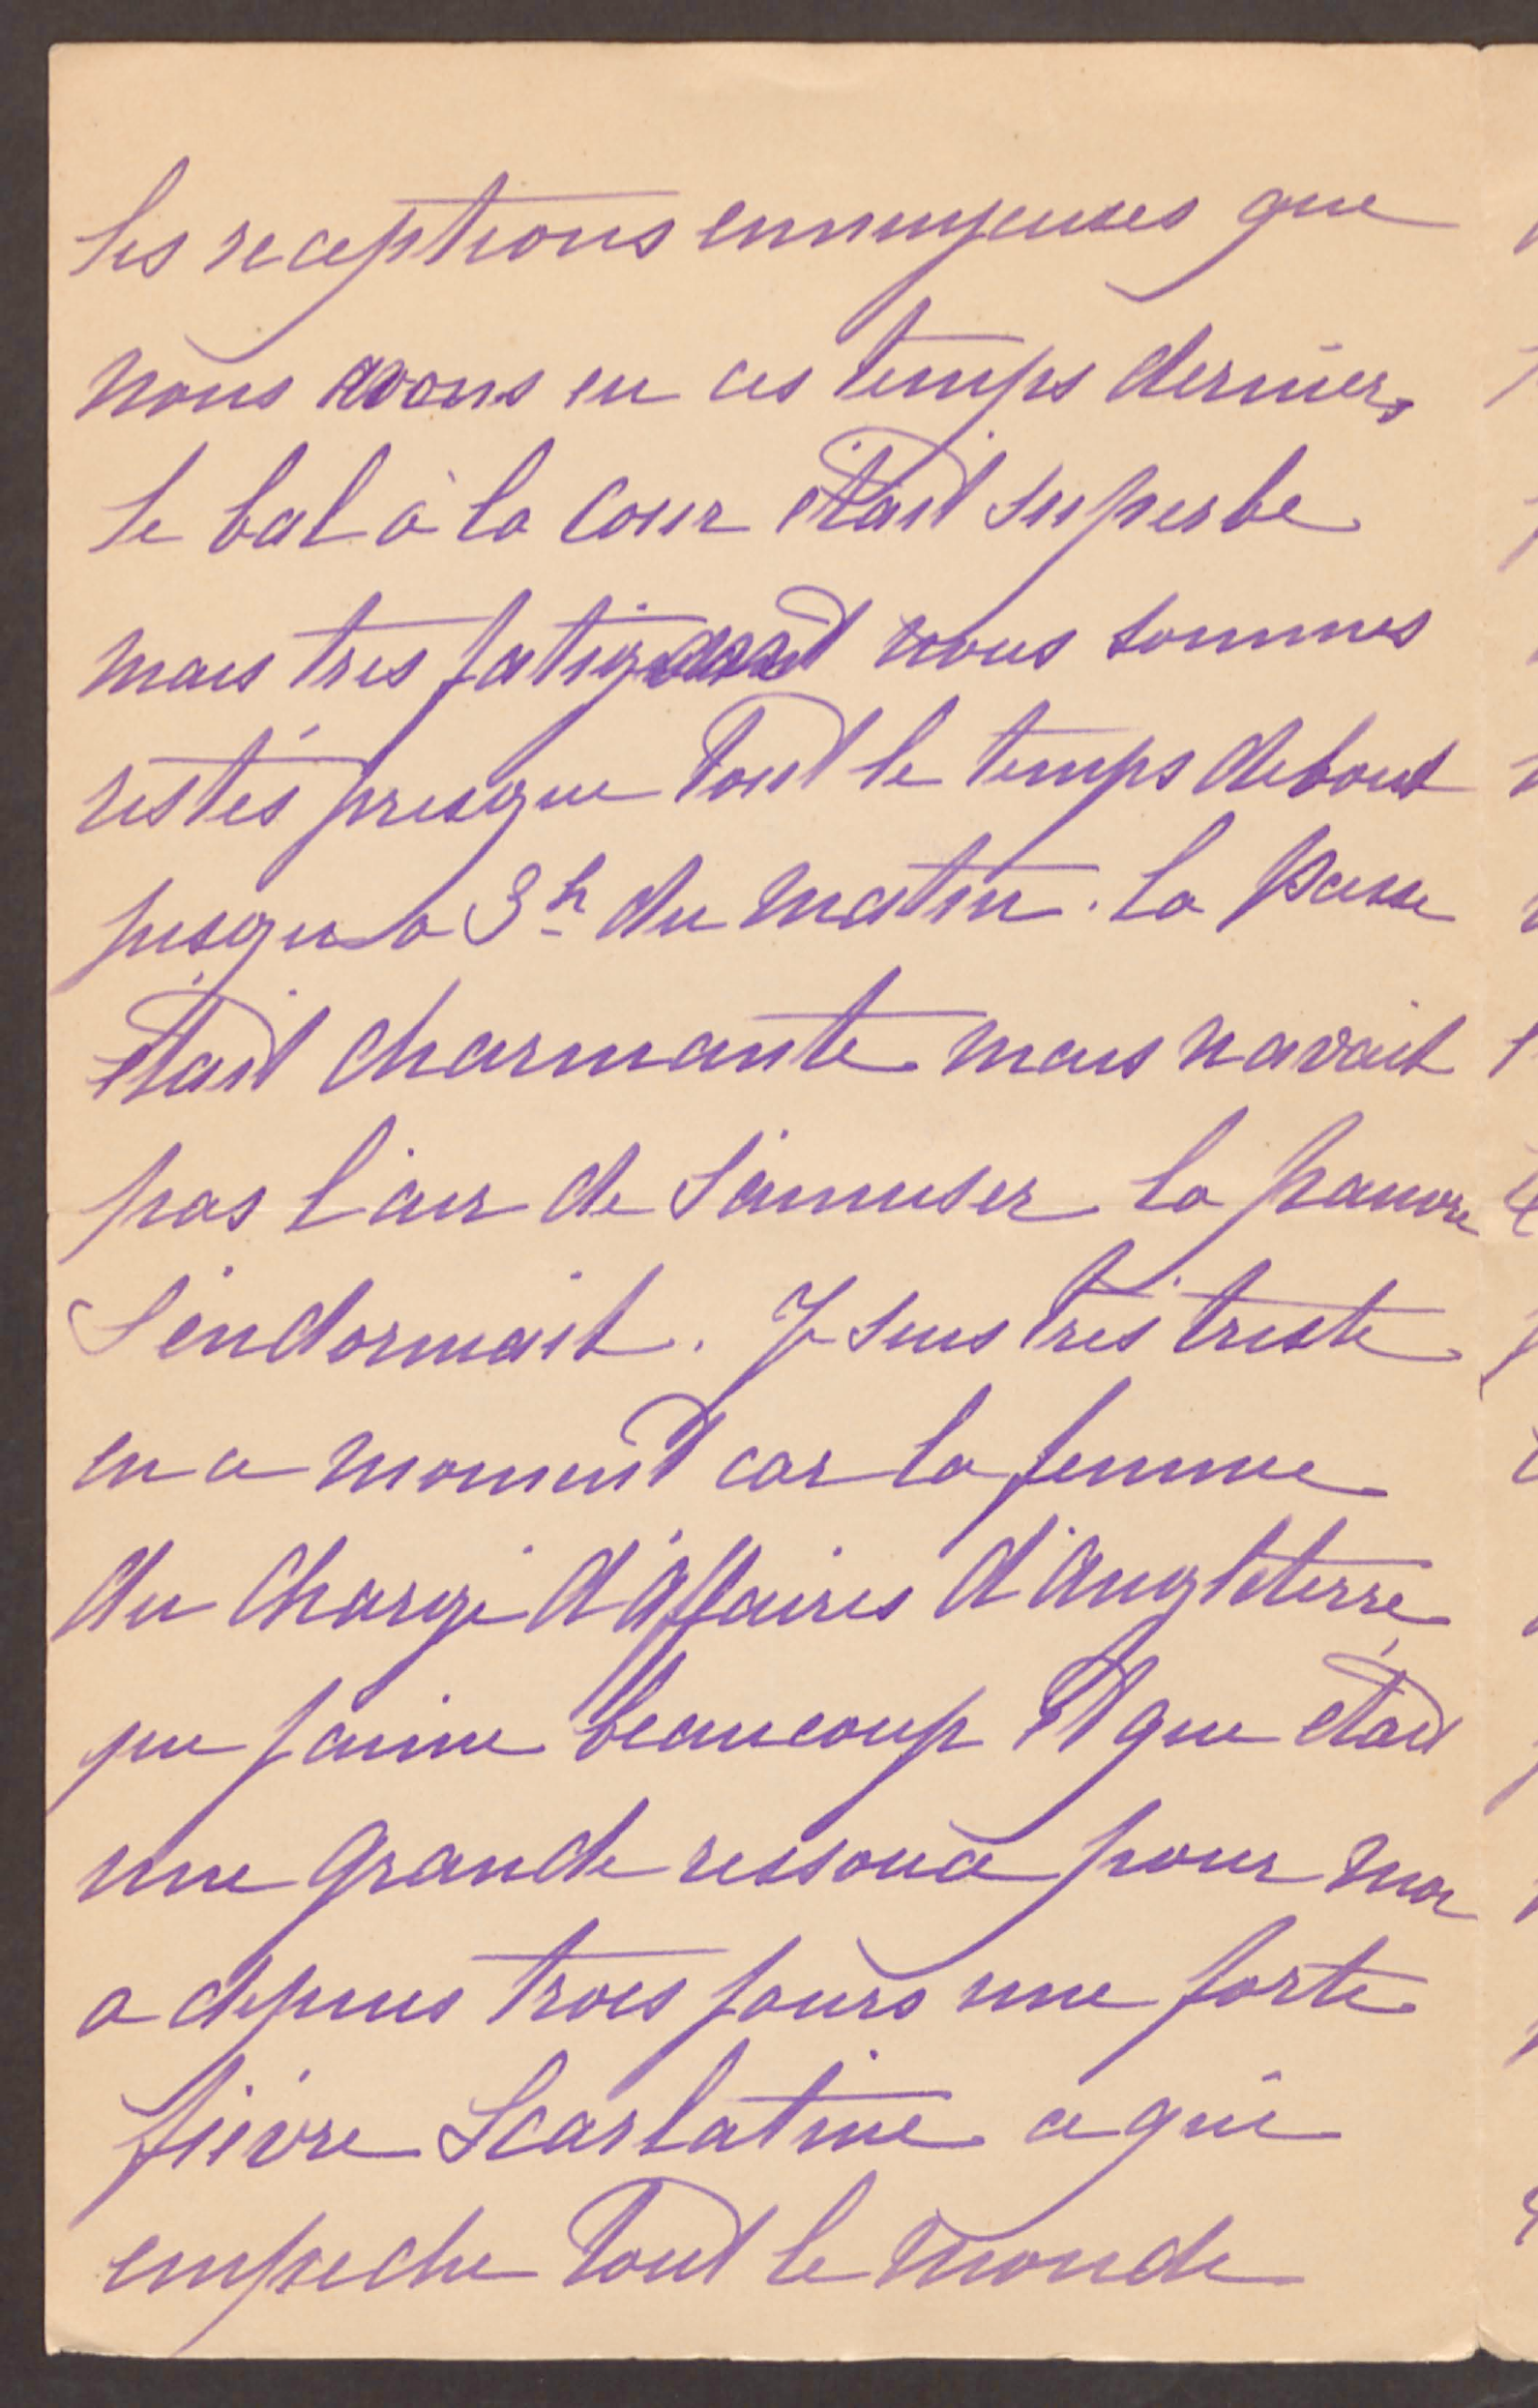 les receptions ennuyeuses que
nous avons eu ces temps derniers
le bal à la Cour était superbe
mais tres fatigant nous sommes
restés presque tout le temps debout
jusqu a 3h du matin. la
était charmante mais navait
pas l'air de s'amuser la pauvre
s'endormait. Je suis très triste
en ce moment car la femme
du Chargé d'affaires d'Angleterre
que j'aime beaucoup et que était
une grande ressource pour moi
a depuis trois jours une forte
fièvre scarlatine ce qui
empeche tout le monde